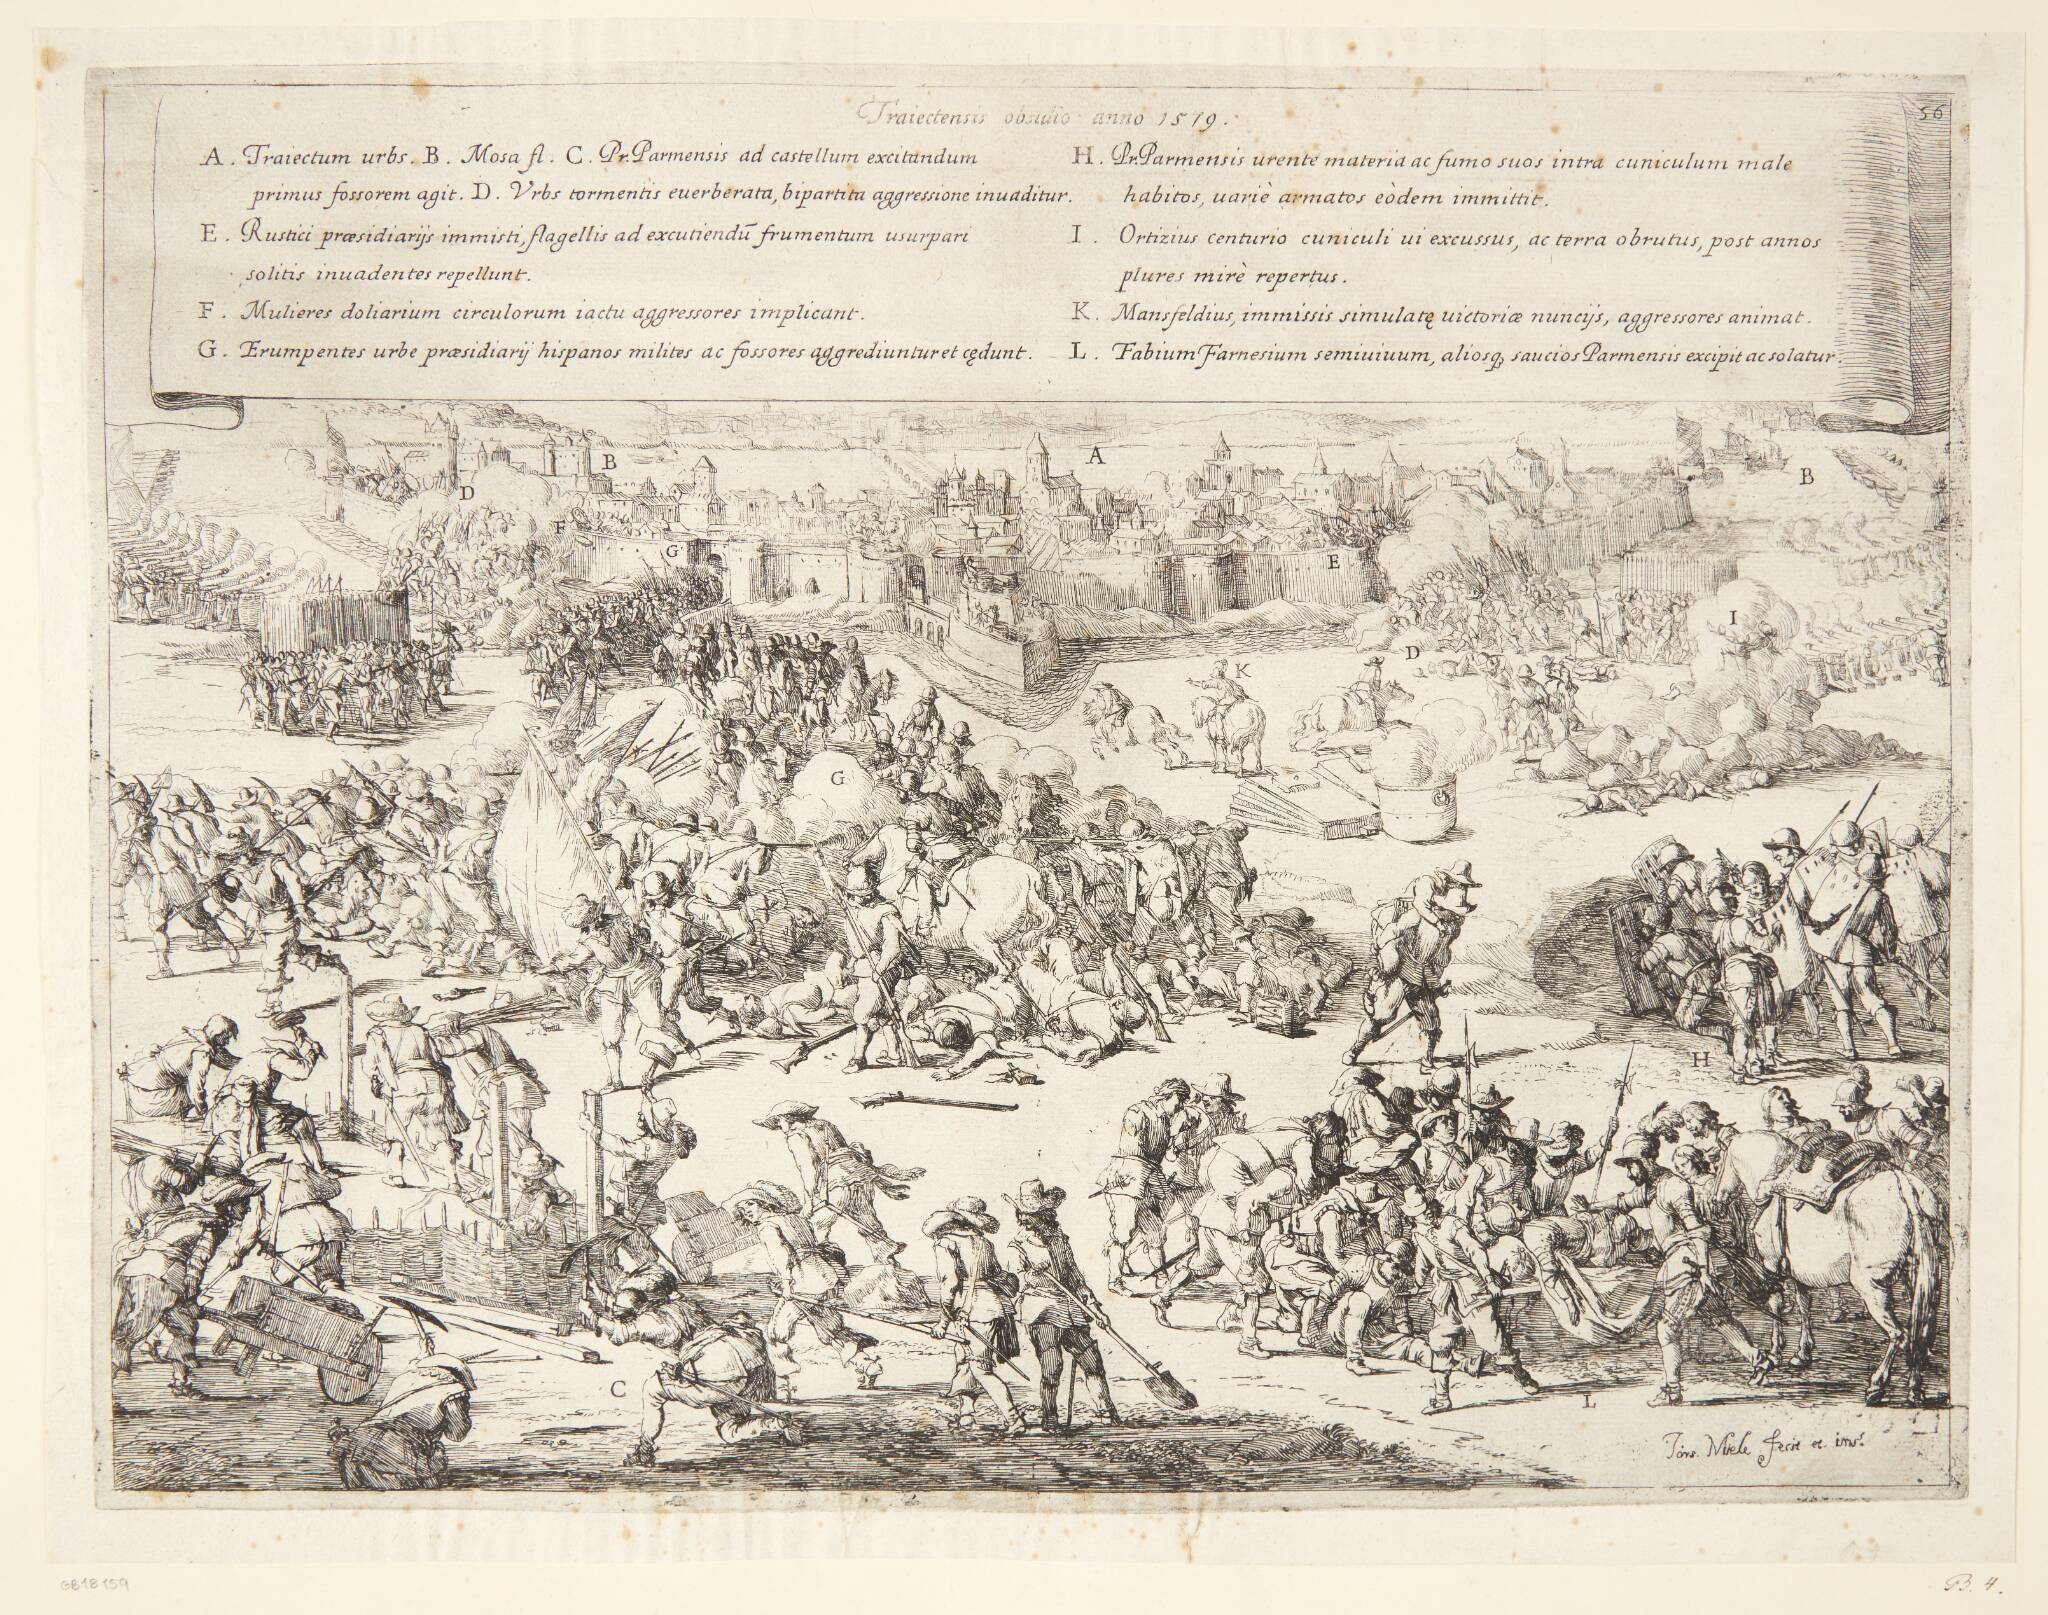 Traiectensis obsidio anno 1579.
56
A. Traiectum urbs. B. Mosa fl. C. Pr. Parmensis ad castellum excitandum
primus fossorem agit. D. Vrbs tormentis euerberata, bipartita aggressione inuaditur.
E. Rustici præsidiarijs immisti, flagellis ad excutiendū frumentum usurpari
solitis inuadentes repellunt.
F. Mulieres doliarium circulorum iactu aggressores implicant.
G. Erumpentes urbe præsidiarij hispanos milites ac fossores aggrediuntur et cędunt.
H. Pr. Parmensis urente materia ac fumo suos intra cuniculum male
habitos, uariè armatos eòdem immittit.
I. Ortizius centurio cuniculi ui excussus, ac terra obrutus, post annos
plures mirè repertus.
K. Mansfeldius, immissis simulatę uictoriæ nuncijs, aggressores animat.
L. Fabium Farnesium semiuiuum, aliosq; saucios Parmensis excipit ac solatur.
A
B
B
D
F
G
E
I
D
K
G
H
C
L
Joās. Miele fecit et inuᵗ
GB18159
B. 4.